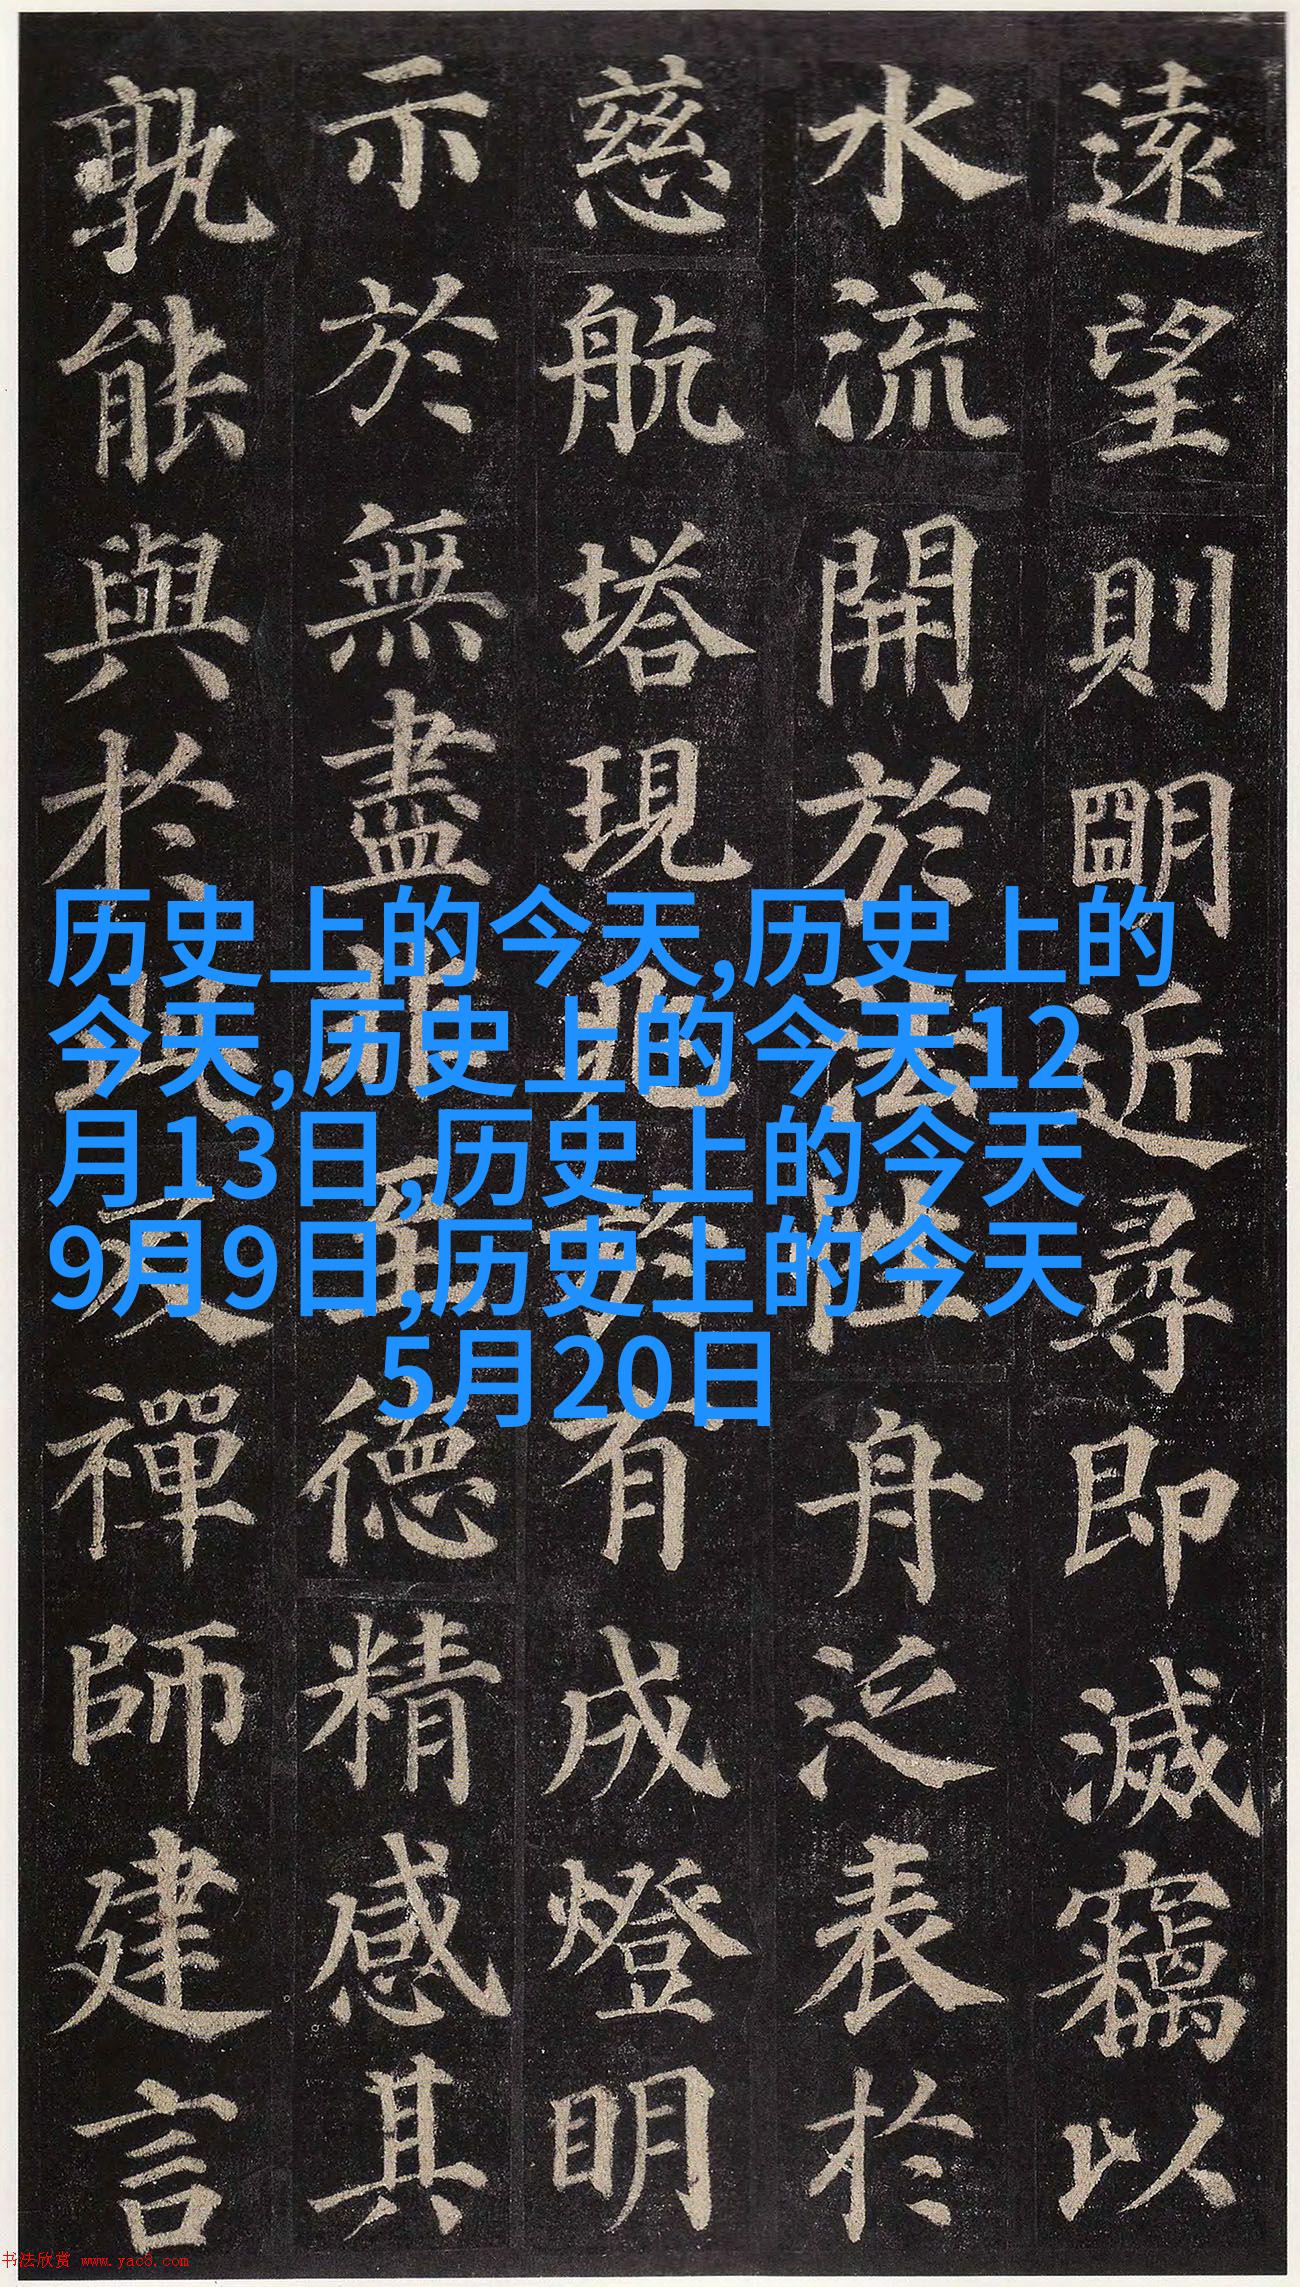 遠望則朙近尋即滅竊以
水流開於法性舟泛表於
慈航塔現兆於有成燈明
示於無盡非至德精感其
孰能與於此及禪師建言
历史上的今天,历史上的
今天,历史上的今天12
月13日,历史上的今天
9月9日,历史上的今天
5月20日
书法欣赏 www.yac8.com